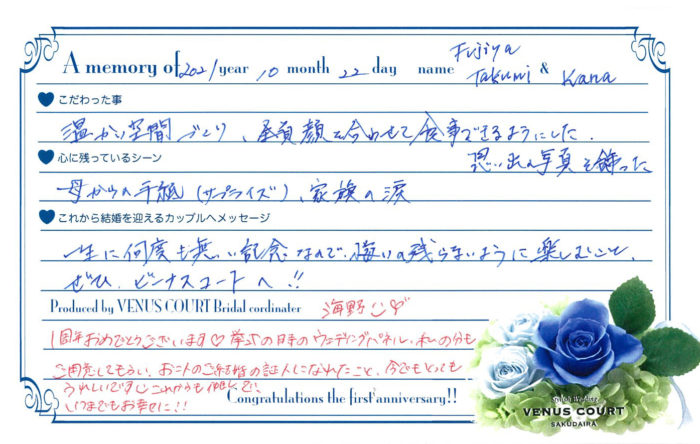 Fujiya
A memory of 2021/year 10 month 22 day name Takumi & Kana
こだわった事
温かい空間づくり、屋頁顔を合わせて食事できるようにした。
思い出の写真を飾った
心に残っているシーン
母からの手紙(サプライズ)、家族の涙
これから結婚を迎えるカップルへメッセージ
一生に何度も無い記念なので、悔いの残らないように楽しむこと、
ぜひ、ビーナスコートへ!!
Produced by VENUS COURT Bridal cordinater 海野
1周年おめでとうございます♡挙式の日手のウェディングパネル、私の分も
ご用意してもらい、お二人のご結婚の証人になれたこと、今でもとっても
うれしいです これからも仲良く、
いつまでもお幸せに!!
Congratulations the first anniversary!!
VENUS COURT
SAKUDAIRA